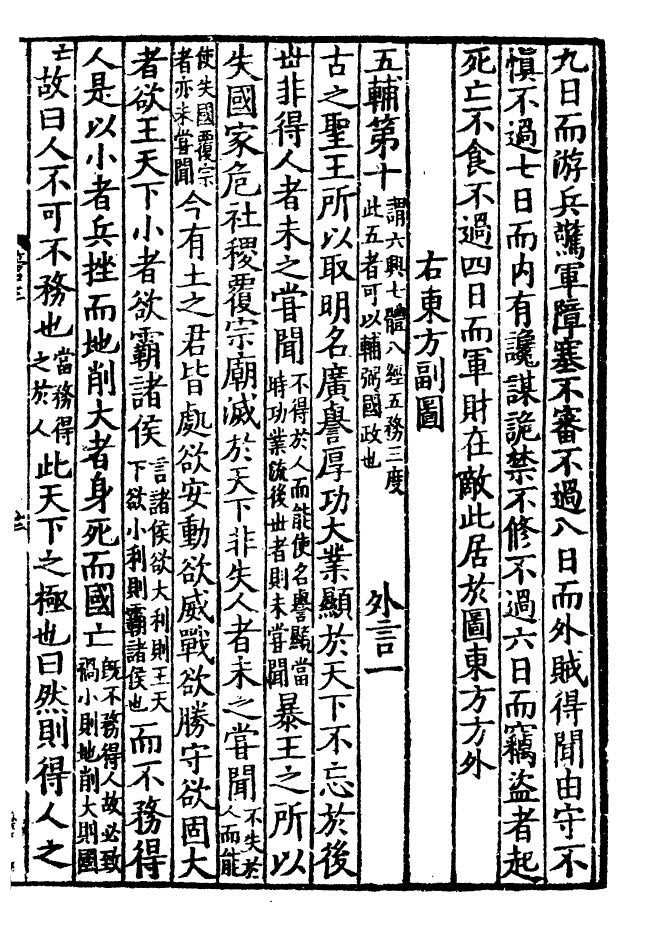 九日而游兵驚軍障塞不審不過八日而外賊得聞由守不
慎不過七日而内有讒謀詭禁不修不過六日而竊盜者起
死亡不食不過四日而軍財在敵此居於圖東方方外
右東方副圖
五輔第十謂六興七體八經五務三度此五者可以輔弼國政也 外言一
古之聖王所以取明名廣譽厚功大業顯於天下不忘於後
世非得人者未之嘗聞不得於人而能使名譽顯當時功業流後世者則未嘗聞暴王之所以
失國家危社稷覆宗廟滅於天下非失人者未之嘗聞不失於人而能
使失國覆宗者亦未嘗聞今有土之君皆處欲安動欲威戰欲勝守欲固大
者欲王天下小者欲霸諸侯言諸侯欲大利則王天下欲小利則霸諸侯也而不務得
人是以小者兵挫而地削大者身死而國亡既不務得人故必致禍小則地削大則國
亡故曰人不可不務也當務得之於人此天下之極也曰然則得人之